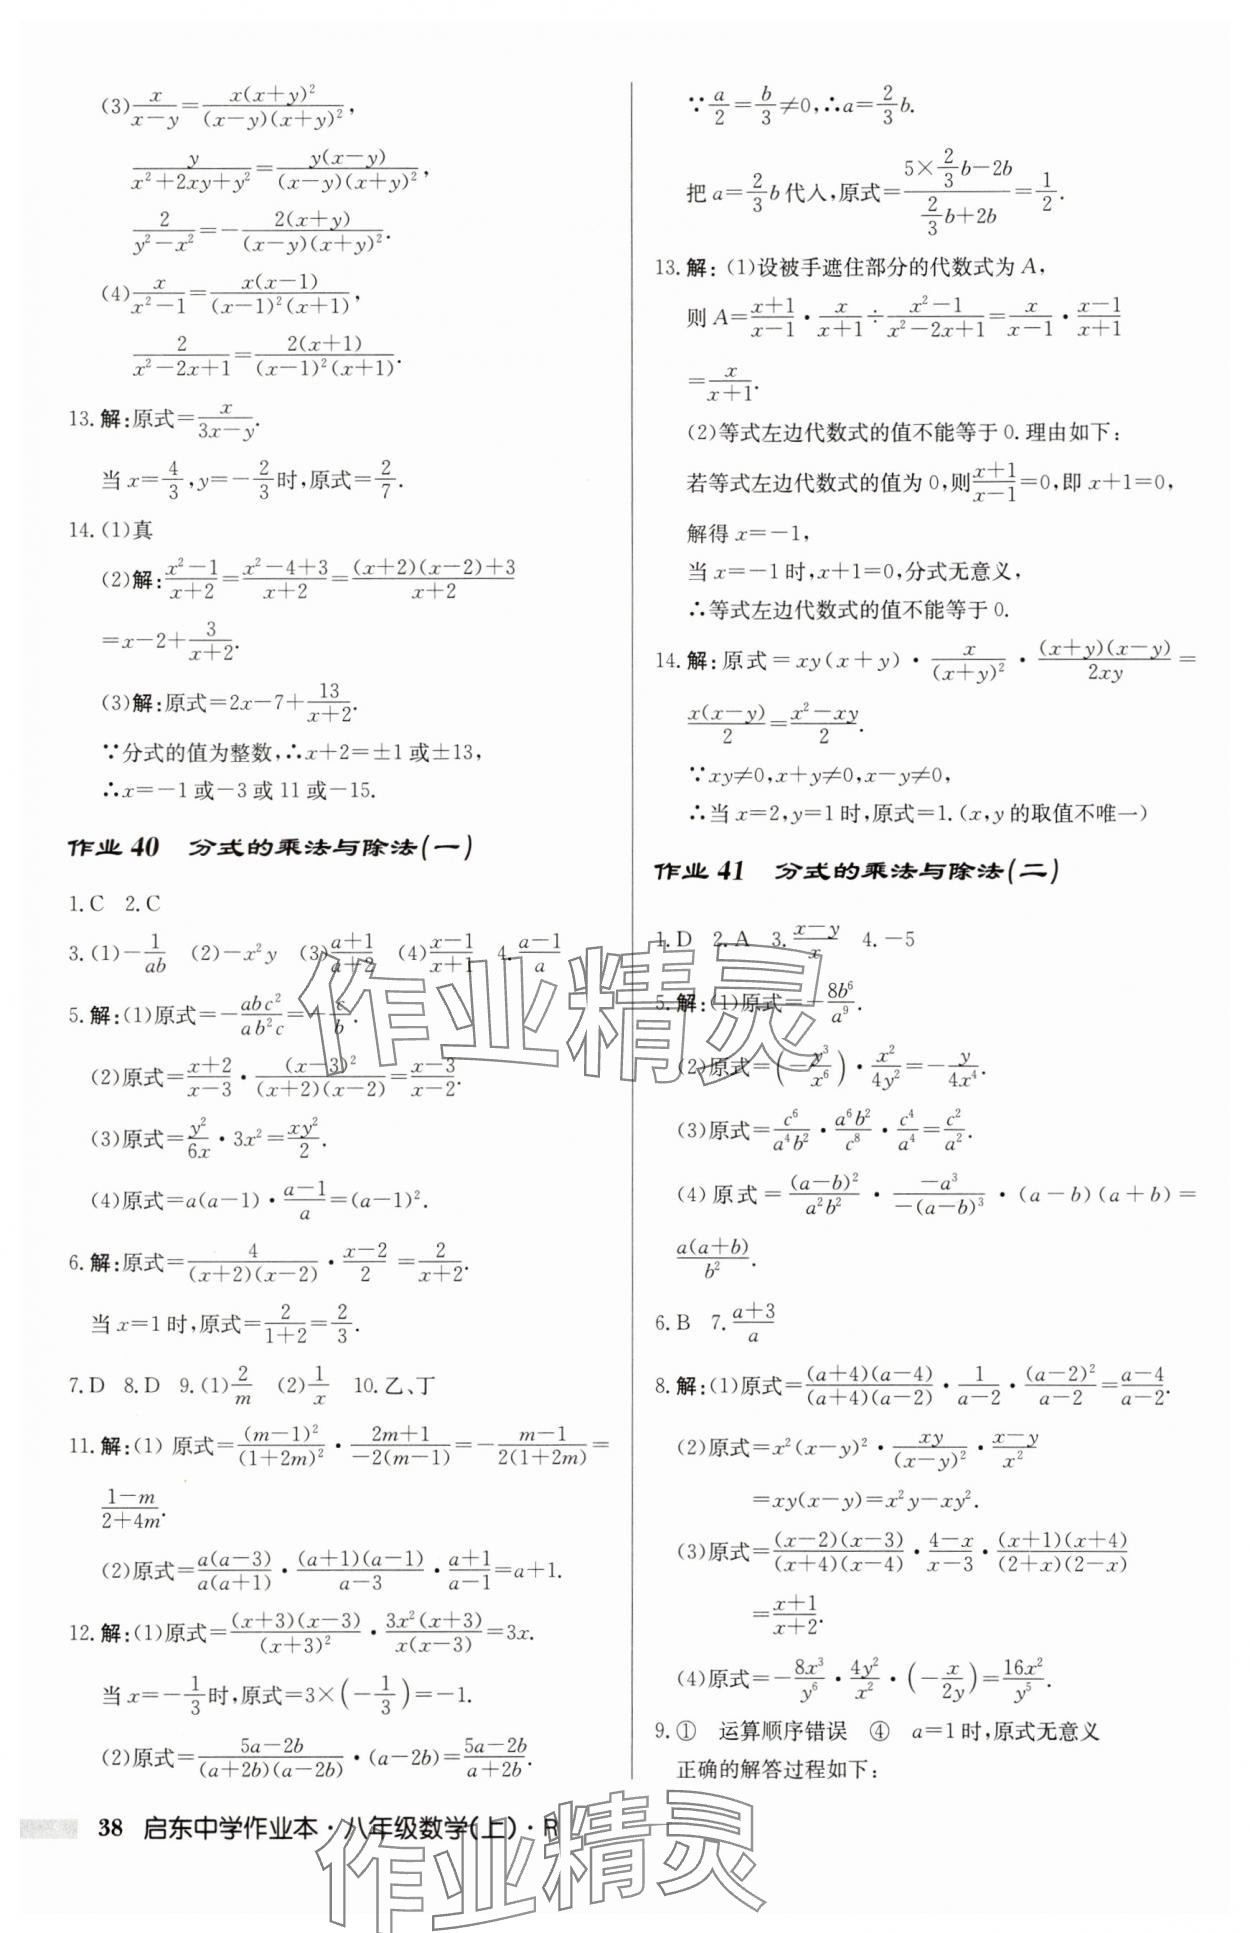 (3)x/(x−y)=x(x+y)²/((x−y)(x+y)²),
y/(x²+2xy+y²)=y(x−y)/((x−y)(x+y)²),
2/(y²−x²)=−2(x+y)/((x−y)(x+y)²).
(4)x/(x²−1)=x(x−1)/((x−1)²(x+1)),
2/(x²−2x+1)=2(x+1)/((x−1)²(x+1)).
13.解:原式=x/(3x−y).
当 x=4/3,y=−2/3时,原式=2/7.
14.(1)真
(2)解:(x²−1)/(x+2)=(x²−4+3)/(x+2)=((x+2)(x−2)+3)/(x+2)
=x−2+3/(x+2).
(3)解:原式=2x−7+13/(x+2).
∵分式的值为整数,∴x+2=±1 或±13,
∴x=−1 或−3 或 11 或−15.
作业 40 分式的乘法与除法(一)
1.C 2.C
3.(1)−1/(ab) (2)−x²y (3)(a+1)/(a+2) (4)(x−1)/(x+1) 4.(a−1)/a
5.解:(1)原式=−abc²/(ab²c)=−c/b.
(2)原式=(x+2)/(x−3)·(x−3)²/((x+2)(x−2))=(x−3)/(x−2).
(3)原式=y²/(6x)·3x²=xy²/2.
(4)原式=a(a−1)·(a−1)/a=(a−1)².
6.解:原式=4/((x+2)(x−2))·(x−2)/2=2/(x+2).
当 x=1 时,原式=2/(1+2)=2/3.
7.D 8.D 9.(1)2/m (2)1/x 10.乙、丁
11.解:(1) 原式=(m−1)²/(1+2m)²·(2m+1)/(−2(m−1))=−(m−1)/(2(1+2m))=
(1−m)/(2+4m).
(2)原式=a(a−3)/(a(a+1))·(a+1)(a−1)/(a−3)·(a+1)/(a−1)=a+1.
12.解:(1)原式=(x+3)(x−3)/(x+3)²·3x²(x+3)/(x(x−3))=3x.
当 x=−1/3时,原式=3×(−1/3)=−1.
(2)原式=(5a−2b)/((a+2b)(a−2b))·(a−2b)=(5a−2b)/(a+2b).
38 启东中学作业本·八年级数学(上)·R
∵a/2=b/3≠0,∴a=2/3b.
把 a=2/3b代入,原式=(5×2/3b−2b)/(2/3b+2b)=1/2.
13.解:(1)设被手遮住部分的代数式为 A,
则 A=(x+1)/(x−1)·x/(x+1)÷(x²−1)/(x²−2x+1)=x/(x−1)·(x−1)/(x+1)
=x/(x+1).
(2)等式左边代数式的值不能等于 0.理由如下:
若等式左边代数式的值为 0,则(x+1)/(x−1)=0,即 x+1=0,
解得 x=−1,
当 x=−1 时,x+1=0,分式无意义,
∴等式左边代数式的值不能等于 0.
14.解:原式=xy(x+y)·x/(x+y)²·(x+y)(x−y)/(2xy)=
x(x−y)/2=(x²−xy)/2.
∵xy≠0,x+y≠0,x−y≠0,
∴当 x=2,y=1 时,原式=1.(x,y 的取值不唯一)
作业 41 分式的乘法与除法(二)
1.D 2.A 3.(x−y)/x 4.−5
5.解:(1)原式=−8b⁶/a⁹.
(2)原式=(−y³/x⁶)·x²/(4y²)=−y/(4x⁴).
(3)原式=c⁶/(a⁴b²)·a⁶b²/c⁸·c⁴/a⁴=c²/a².
(4)原式=(a−b)²/(a²b²)·−a³/(−(a−b)³)·(a−b)(a+b)=
a(a+b)/b².
6.B 7.(a+3)/a
8.解:(1)原式=(a+4)(a−4)/((a+4)(a−2))·1/(a−2)·(a−2)²/(a−2)=(a−4)/(a−2).
(2)原式=x²(x−y)²·xy/(x−y)²·(x−y)/x²
=xy(x−y)=x²y−xy².
(3)原式=(x−2)(x−3)/((x+4)(x−4))·(4−x)/(x−3)·(x+1)(x+4)/((2+x)(2−x))
=(x+1)/(x+2).
(4)原式=−8x³/y⁶·4y²/x²·(−x/(2y))=16x²/y⁵.
9.① 运算顺序错误 ④ a=1 时,原式无意义
正确的解答过程如下:
作业精灵
作业精灵